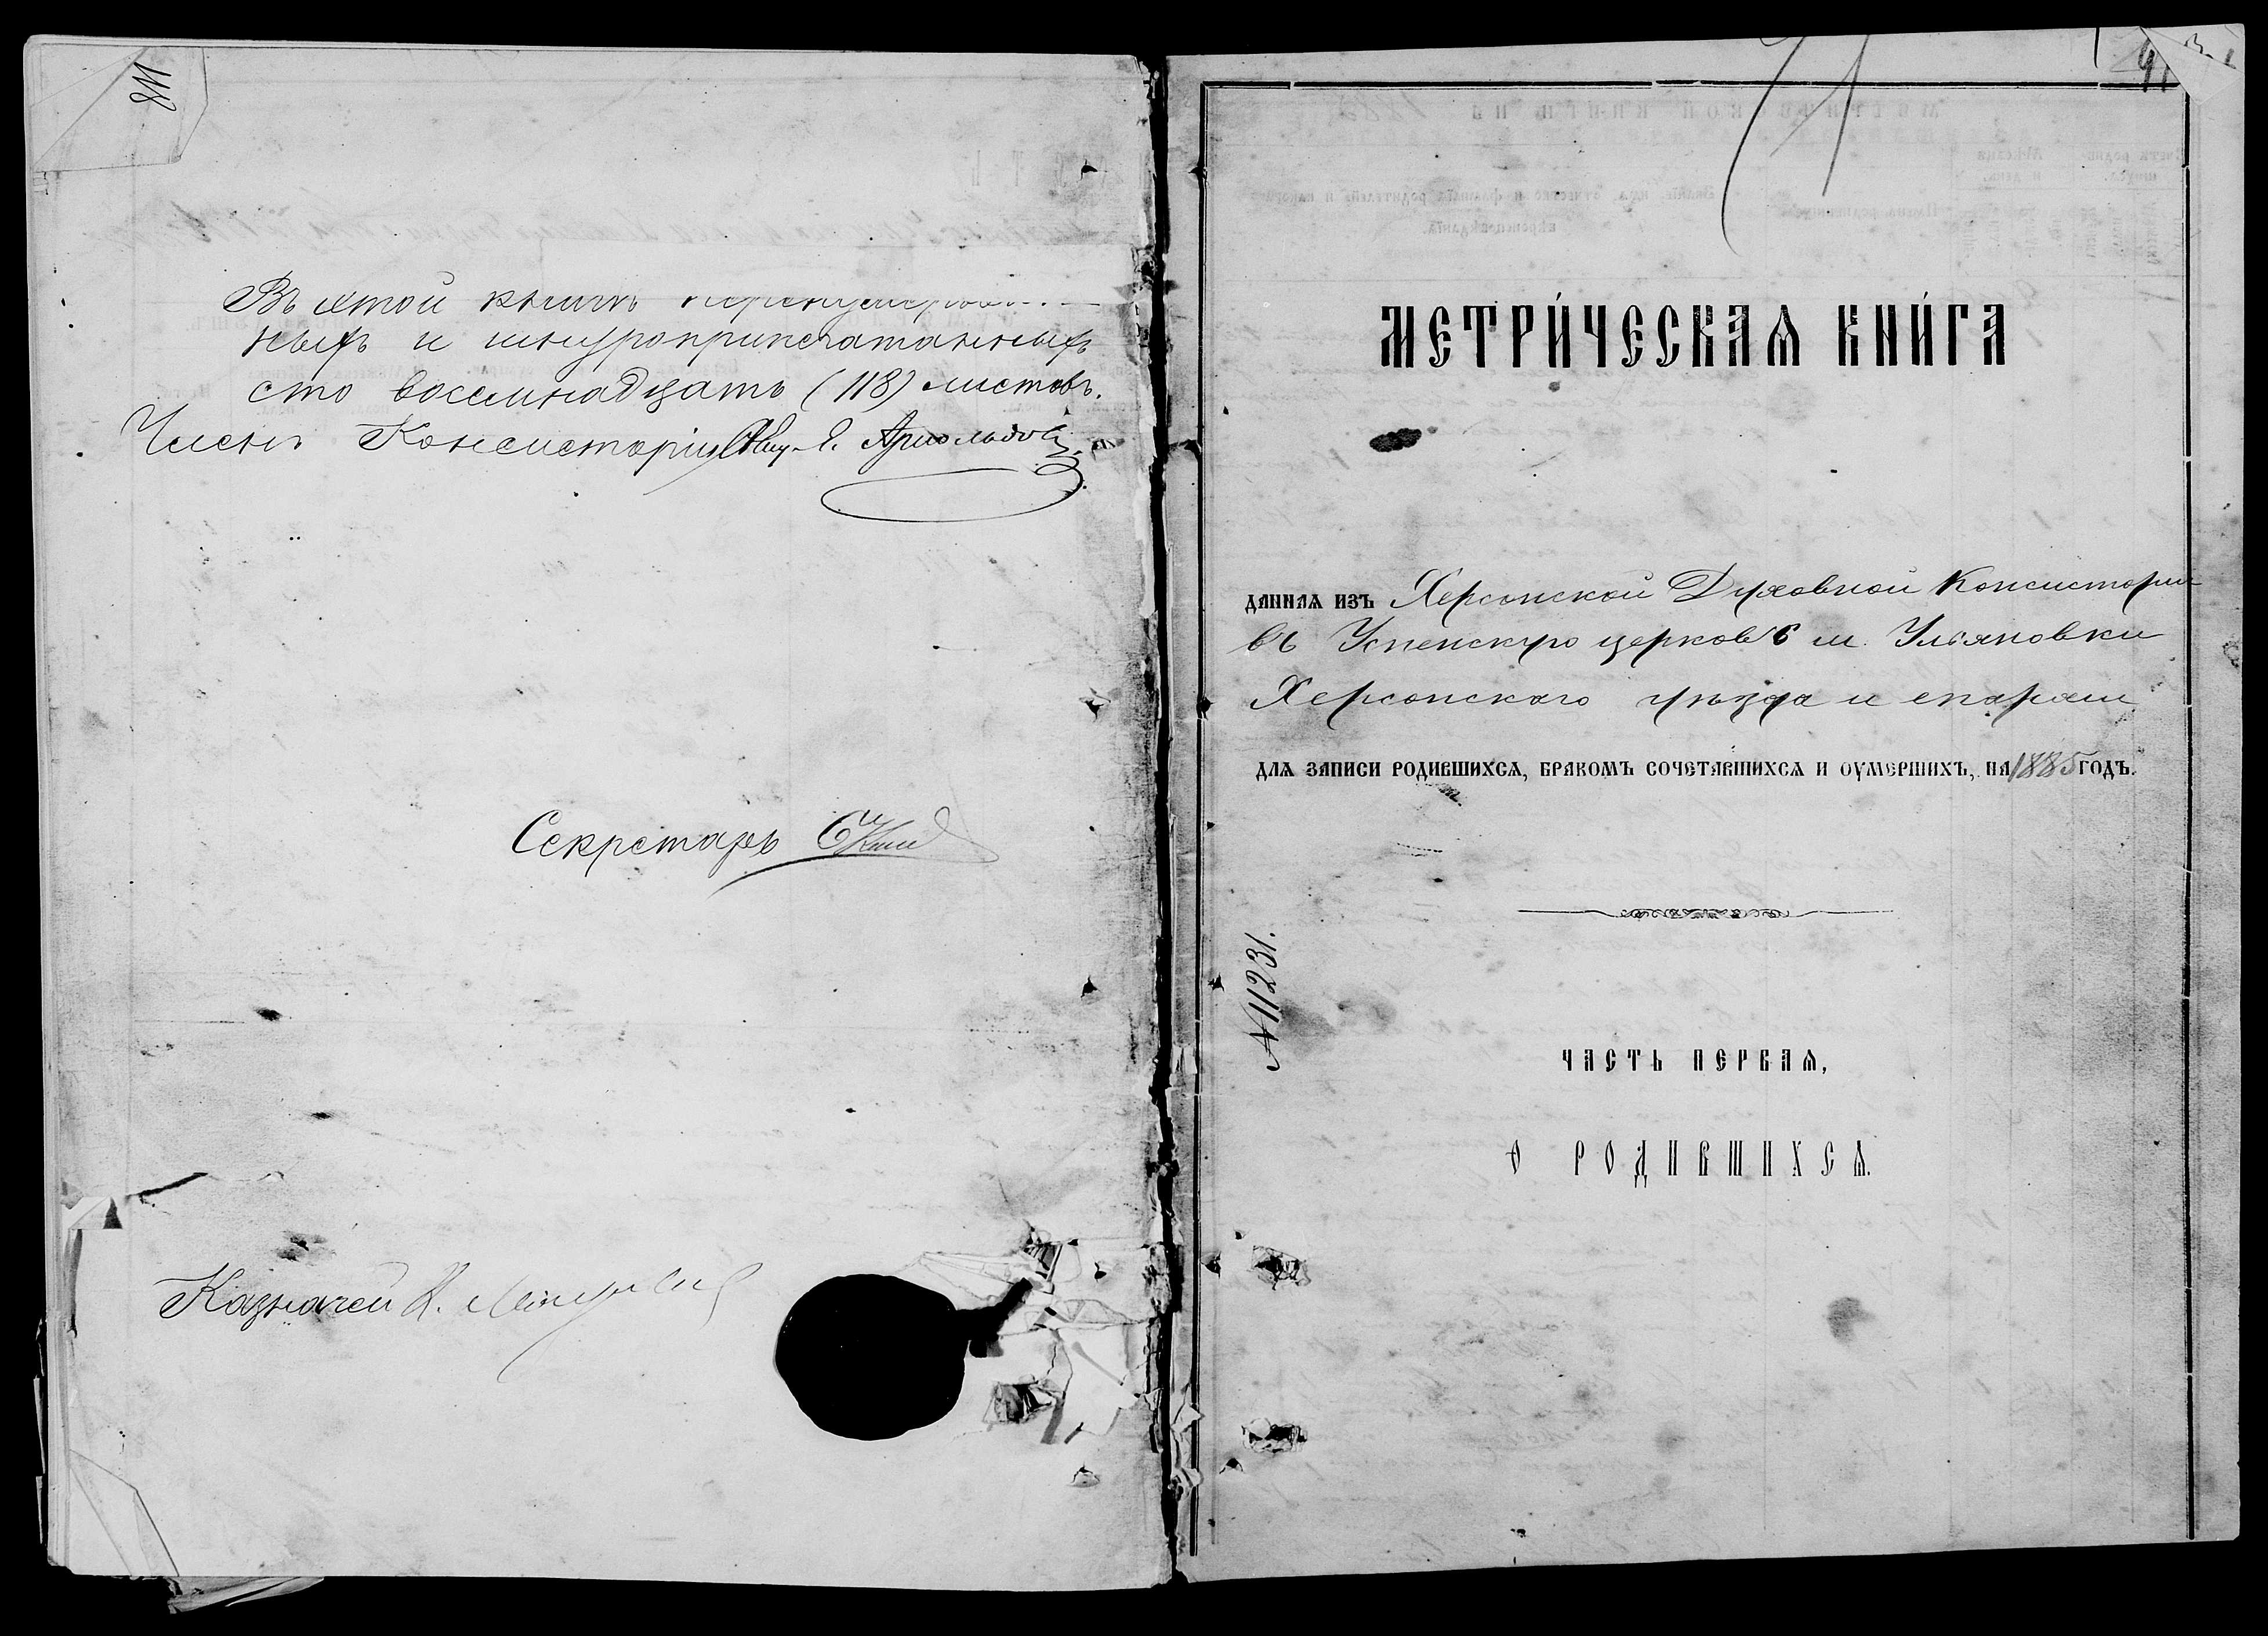 118
Въ этой книгѣ перенумерован-
ныхъ и шнуроприпечатанныхъ
сто восемнадцать (118) листовъ.
Членъ Консисторіи, Свящ. Арнольдовъ
Секретарь
Казначей
МЕТРИ́ЧЕСКАѦ КНИ́ГА
ДАННАѦ ИЗЪ Херсонской Духовной Консисторіи
въ Успенскую церковь м. Ульяновки
Херсонскаго уѣзда и епархіи
ДЛѦ ЗАПИСИ РОДИВШИХСѦ, БРАКОМЪ СОЧЕТАВШИХСѦ И ОУМЕРШИХЪ, НА 1885 ГОДЪ.
№ 11231.
ЧАСТЬ ПЕРВАѦ,
О РОДИВШИХСѦ.